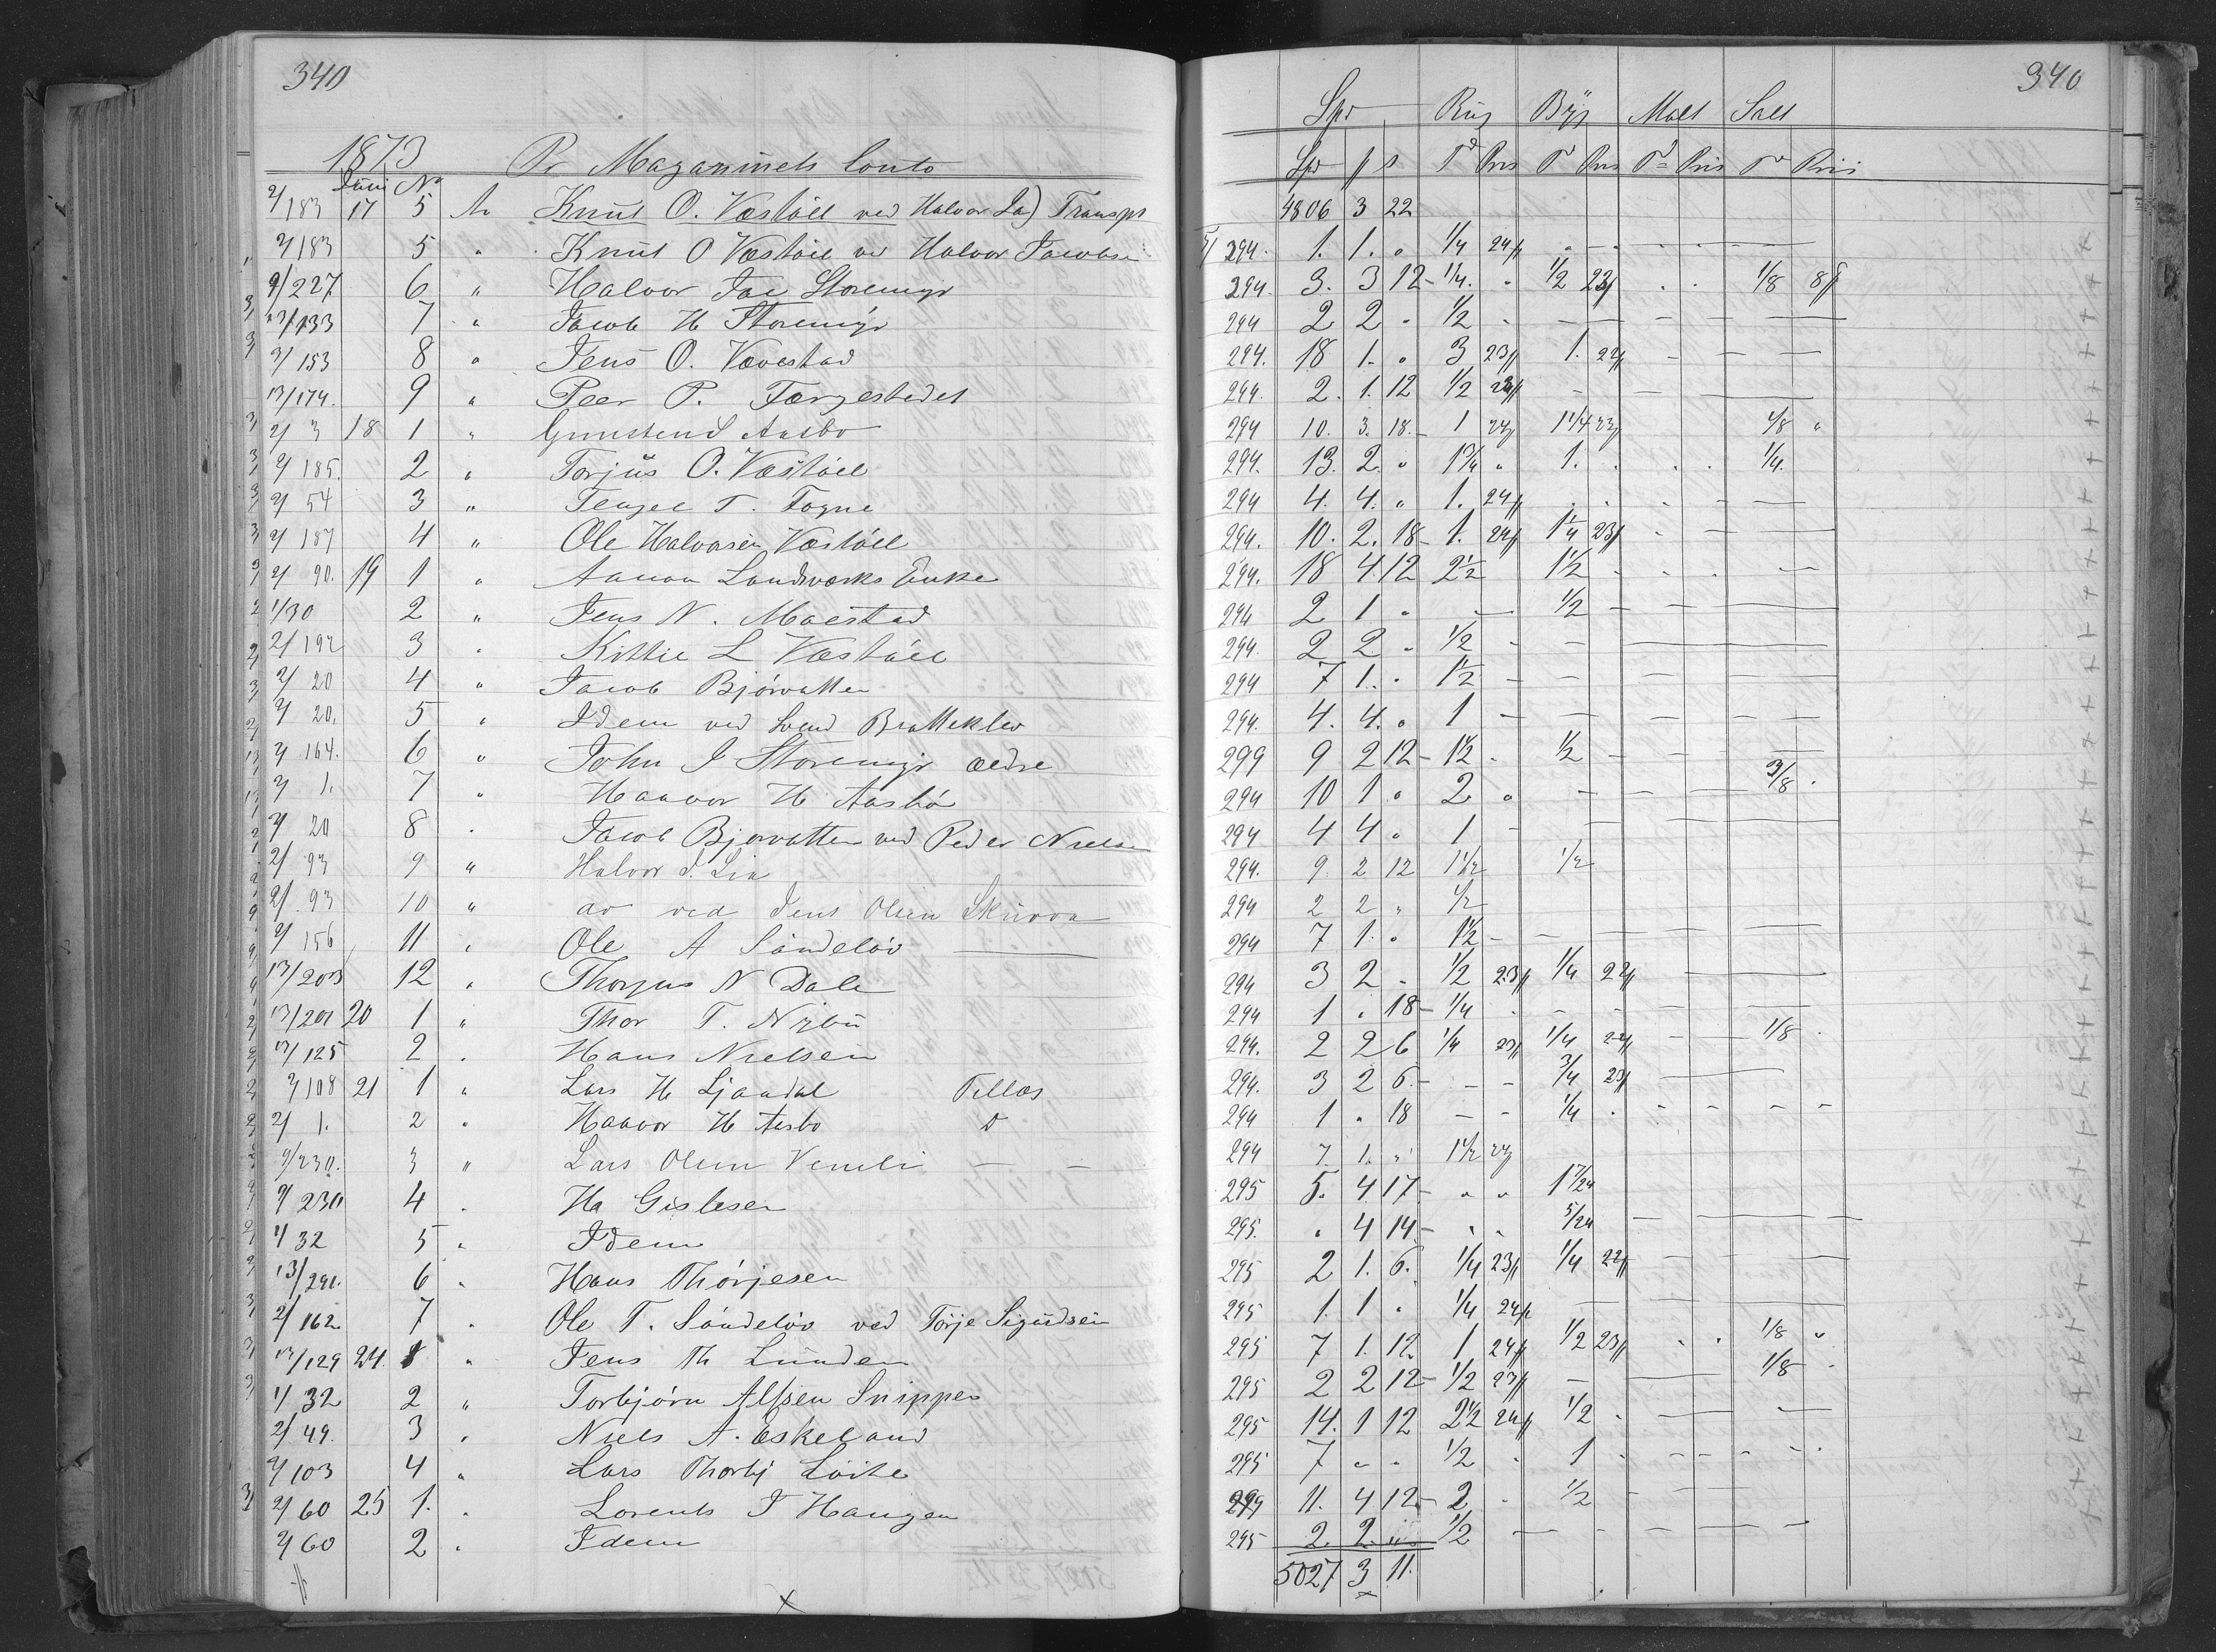 340
1873 Pr Magasinets Conto
Juni No
2/183 17 5 An Knut O. Væstöll ved Halvor Ja) Transpt
2/183 5 " Knut O Væstöll ved Halvor Jacobsen
9/227 6 " Halvor Jac Storemyr
13/133 7 " Jacob H Storemyr
3/153 8 " Jens O. Vævestad
13/174. 9 " Peer P. Færgestedet
2/3 18 1 " Gunstend Aasbø
2/185. 2 " Torjus O. Væstöll
2/54 3 " T. Fogne
2/187 4 " Ole Halvorsen Væstöll
2/90. 19 1 " Aanon Landværks Enke
1/30 2 " Jens N. Moestad
2/192 3 " Kittil L Væstöll
2/20 4 " Jacob Bjórvatten
2/20. 5 " Idem ved Svend Bratteklev
2/164. 6 " John J Storemyr ældre
2/1. 7 " Haavor H. Aasbö
2/20 8 " Jacob Bjorvatten ved Peder Nielsen
2/93 9 " Halvor J. Lia
2/93 10 " do ved Jens Olsen
2/156 11 " Ole A Söndelöv
13/203 12 " Thorjus N Dale
13/201 20 1 " Thor T. Nybu
13/125 2 " Hans Nielsen
2/108 21 1 " Lars H Ljaadal Tillæs
2/1. 2 " Haavor H Aasbo D
9/230. 3 " Lars Olsen Veneli
9/230 4 " Ha Gislesen
1/32 5 " Idem
13/291. 6 " Hans Thórjesen
2/162 7 " Ole T. Söndelöv ved Törje Sigurdsen
13/129 24. 1 " Jens Th Lunden
1/32 2 " Torbjórn Alfsen Snippen
2/49. 3 " Niels A. Eskeland
2/103 4 " Lars Thorbj Löite
2/60 25 1. " Lorents J Haugen
2/60 2 " Idem
340
Spd Rug Byg Malt Salt
Spd ß s Td Pris Td Pris Td Pris Td Pris
4806 3 22
294. 1. 1. " 1/4 24ß
294. 3. 3 12 1/4. " 1/2 23ß 1/8 8ß
294 2 2 " 1/2
294. 18 1. " 3 23ß 1. 22ß
294. 2. 1. 12 1/2 23ß
294 10. 3. 18. 1 24ß 1 1/4 23ß 1/8 "
294. 13. 2. " 1 3/4 " 1. 1/4.
294 4. 4. " 1. 24ß
294. 10. 2. 18 1. 24ß 1 1/4 23ß
294. 18 4 12 2 1/2 1 1/2
294 2 1 " 1/2
294. 2 2 " 1/2
294 7 1. " 1 1/2
294. 4. 4. " 1
299 9 2 12 1 1/2 1/2
294 10 1 " 2 " 3/8
294 4 4 " 1
294. 9 2 12 1 1/2 1/2
294 2 2 " 1/2
294 7 1. " 1 1/2
294 3 2 " 1/2 23ß 1/4 22ß
294 1 " 18 1/4
294. 2 2 6 1/4 23ß 1/4 22ß 1/8
294. 3 2 6. 3/4 23ß
294 1 " 18 1/4
294 7. 1. " 1 1/2 24ß
295 5. 4 17 " " 1 7/24
295. " 4 14 5/24
295 2 1. 6. 1/4 23ß 1/4 22ß
295 1. 1 " 1/4 24ß
295 7 1. 12 1 24ß 1/2 23ß 1/8 "
295 2 2 12 1/2 23ß 1/8
295 14. 1 12 2 1/2 24ß 1/2
295 7 " " 1/2 1
299 11. 4 12 2 1/2
295 2. 2. " 1/2
5027 3 11.